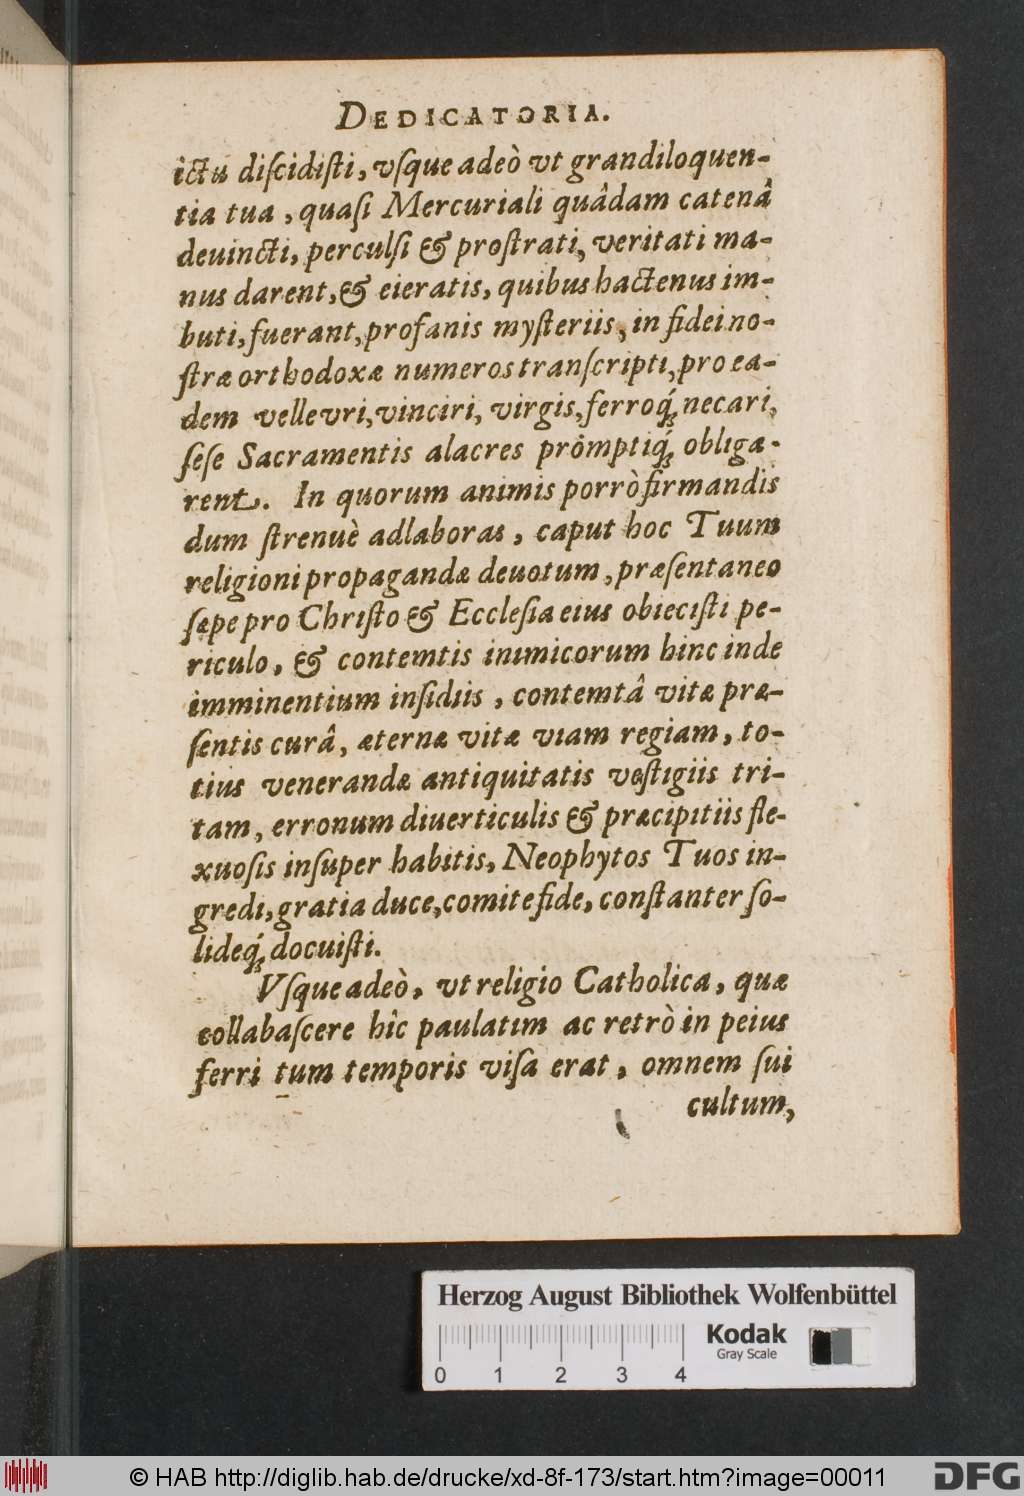 DEDICATORIA.
ictu diſcidiſti, vſque adeò vt grandiloquen-
tia tua, quaſi Mercuriali quâdam catenâ
deuincti, perculſi & proſtrati, veritati ma-
nus darent, & eieratis, quibus hactenus im-
buti, fuerant, profanis myſteriis, in fidei no-
ſtræ orthodoxæ numeros tranſcripti, pro ea-
dem velle vri, vinciri, virgis, ferroq́ꝫ necari,
ſeſe Sacramentis alacres prōmptiq́ꝫ obliga-
rent. In quorum animis porrò firmandis
dum ſtrenuè adlaboras, caput hoc Tuum
religioni propagandæ deuotum, præſentaneo
ſæpe pro Chriſto & Eccleſia eius obieciſti pe-
riculo, & contemtis inimicorum hinc inde
imminentium inſidiis, contemtâ vitæ præ-
ſentis curâ, æternæ vitæ viam regiam, to-
tius venerandæ antiquitatis veſtigiis tri-
tam, erronum diuerticulis & præcipitiis fle-
xuoſis inſuper habitis, Neophytos Tuos in-
gredi, gratia duce, comite fide, conſtanter ſo-
lideq́ꝫ docuiſti.
Vſque adeò, vt religio Catholica, quæ
collabaſcere hîc paulatim ac retrò in peius
ferri tum temporis viſa erat, omnem ſui
cultum,
Herzog August Bibliothek Wolfenbüttel
Kodak
Gray Scale
0 1 2 3 4
© HAB http://diglib.hab.de/drucke/xd-8f-173/start.htm?image=00011
DFG